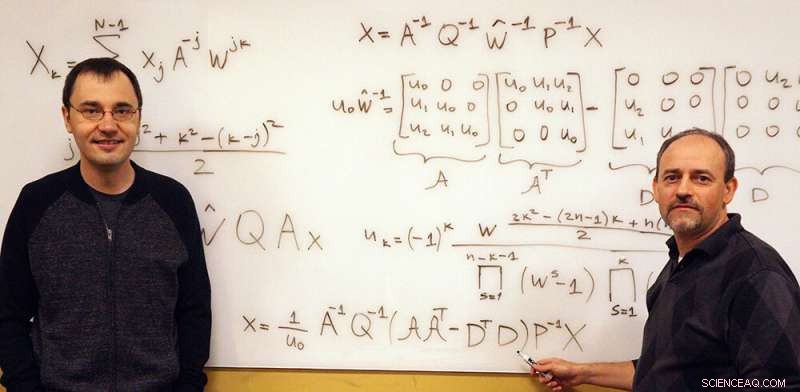 X_k = \sum^{N-1} x_j A^{-j} W^{jk}
x = A^{-1} Q^{-1} \hat{W}^{-1} P^{-1} X
u_0 \hat{W}^{-1} = [u_0 0 0; u_1 u_0 0; u_2 u_1 u_0] [u_0 u_1 u_2; 0 u_0 u_1; 0 0 u_0] - [0 0 0; u_2 0 0; u_1 0] [0 u_2; 0 0; 0 0]
A A^T D
j ^2 + k^2 - (k-j)^2
2
\hat{W} Q A x
u_k = (-1)^k \frac{W^{\frac{2k^2 - (2n-1)k + n(}{2}}}{\prod_{s=1}^{n-k-1} (W^s - 1) \prod_{s=1}^{k} (}
x = \frac{1}{u_0} A^{-1} Q^{-1} (A A^T - D^T D) P^{-1} X
SCIENCEAQ.COM